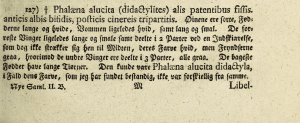 127) † Phalæna alucita (didactylites) alis patentibus fissis.
anticis albis bifidis, posticis cinereis tripartitis. Øinene ere sorte, Fød-
derne lange og hvide, Vommen ligeledes hvid, samt lang og smal. De for-
reste Vinger ligeledes lange og smale samt deelte i 2 Parter ved en Indskiærelse,
som dog ikke strækker sig hen til Midten, deres Farve hvid, men Frondserne
graa, hvorimod de undre Vinger ere deelte i 3 Parter, alle graa. De bageste
Fødder have lange Tiorner. Den kunde være Phalæna alucita didactyla,
i Fald dens Farve, som jeg har fundet bestandig, ikke var forskiellig fra samme.
Nye Saml. II. B. M Libel-